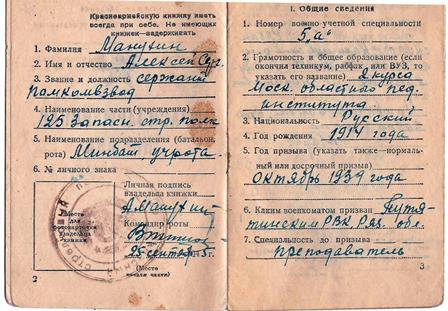 Красноармейскую книжку иметь
всегда при себе. Не имеющих
книжек—задерживать
1. Фамилия Манухин
2. Имя и отчество Алексей Сер.
3. Звание и должность сержант
помкомвзвод
4. Наименование части (учреждения)
125 Запасн. стр. полк
5. Наименование подразделения (батальон,
рота) Минбат учрота.
6. № личного знака
Место
для
фотокарточки
владельца
книжки
Личная подпись
владельца книжки
АМанухин
Командир роты
25 сентября 5 г.
(Место
печати части)
2
I. Общие сведения
1. Номер военно-учетной специальности
5„а“
2. Грамотность и общее образование (если
окончил техникум, рабфак или ВУЗ, то
указать его название) 2 курса
Моск. областного пед.
института.
3. Национальность Русский
4. Год рождения 1914 года
5. Год призыва (указать также—нормаль-
ный или досрочный призыв)
октябрь 1939 года
6. Каким военкоматом призван Путя-
тинским РВК Ряз. обл.
7. Специальность до призыва
преподаватель
3